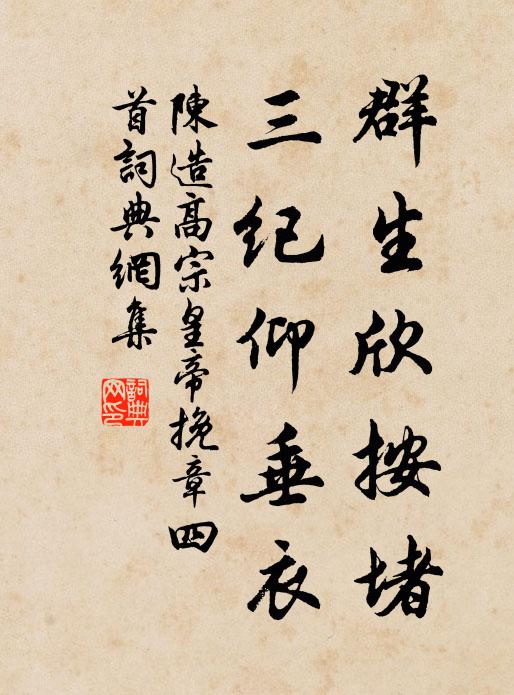 群生欣按堵
三纪仰垂衣
陳造高宗皇帝挽章四
首詞典網集
詞典网印